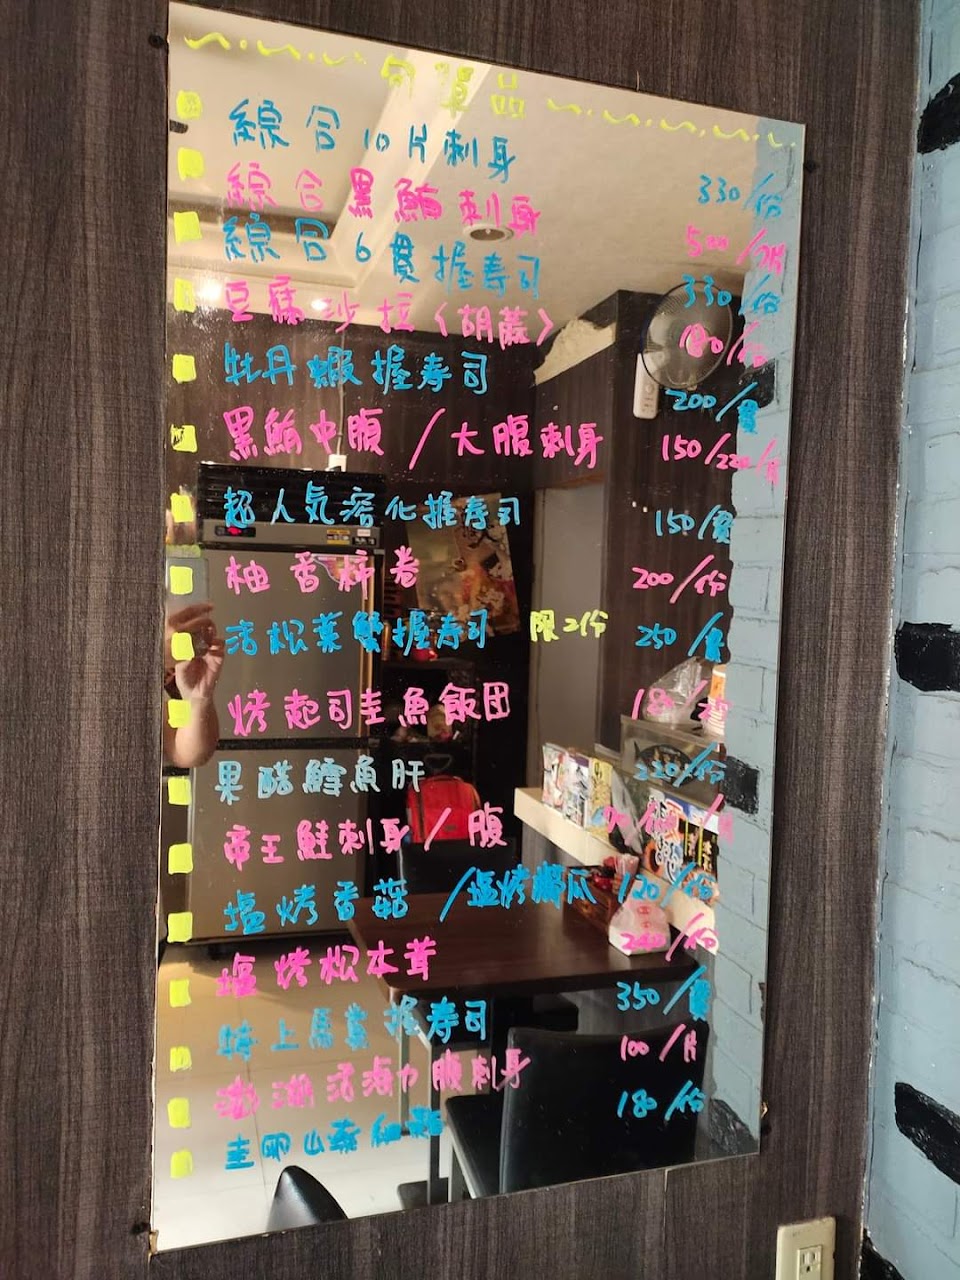 單品
綜合10片刺身 330/份
綜合黑鮪刺身 500/7片
綜合6貫握寿司 330/份
豆腐沙拉(胡蔴) 180/份
牡丹蝦握寿司 200/貫
黑鮪中腹/大腹刺身 150/220/片
超人気溶化握寿司 150/貫
柚香柿卷 200/份
活松葉蟹握寿司 限2份 250/貫
烤起司圭魚飯团 18
果醋鱈魚肝 220/份
帝王鮭刺身/腹
塩烤香菇/塩烤 120/份
塩烤松本茸 240/份
特上馬糞握寿司 350/貫
澎湖活海力腹刺身 100/片
圭卵山泰 180/份